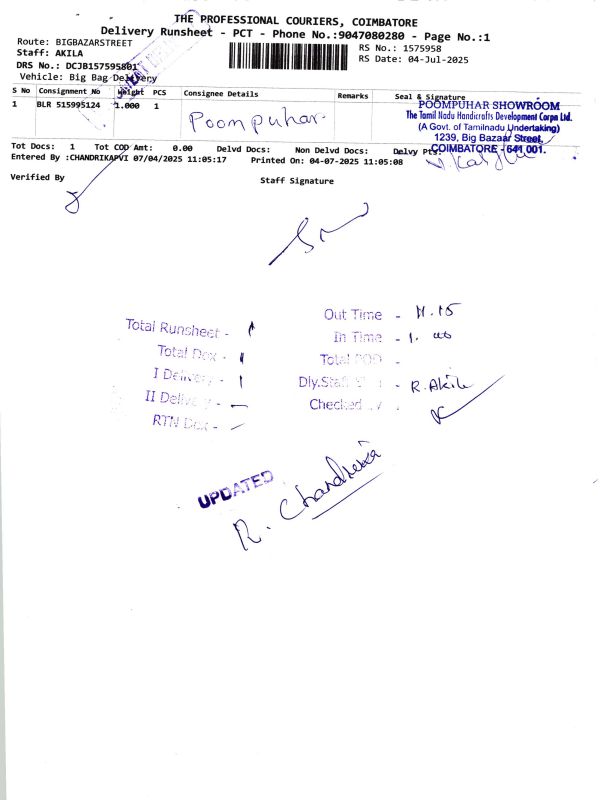 THE PROFESSIONAL COURIERS, COIMBATORE
Delivery Runsheet - PCT - Phone No.:9047080280 - Page No.:1
Route: BIGBAZARSTREET
Staff: AKILA
DRS No.: DCJB157595801
Vehicle: Big Bag Delivery
RS No.: 1575958
RS Date: 04-Jul-2025
S No Consignment No Weight PCS Consignee Details Remarks Seal & Signature
1 BLR 515995124 1.000 1 Poompuhar
POOMPUHAR SHOWROOM
The Tamil Nadu Handicrafts Development Corpn Ltd.
(A Govt. of Tamilnadu Undertaking)
1239, Big Bazaar Street,
COIMBATORE - 641 001.
Tot Docs: 1 Tot COD Amt: 0.00 Delvd Docs: Non Delvd Docs: Delvy Pts:
Entered By :CHANDRIKAPVI 07/04/2025 11:05:17 Printed On: 04-07-2025 11:05:08
Verified By Staff Signature
Total Runsheet - 1
Total Dox - 1
I Delivery - 1
II Delivery -
RTN Dox -
Out Time - 11.15
In Time - 1.00
Total POD -
Dly.Staff - R. Akila
Checked
UPDATED
R. Chandrika